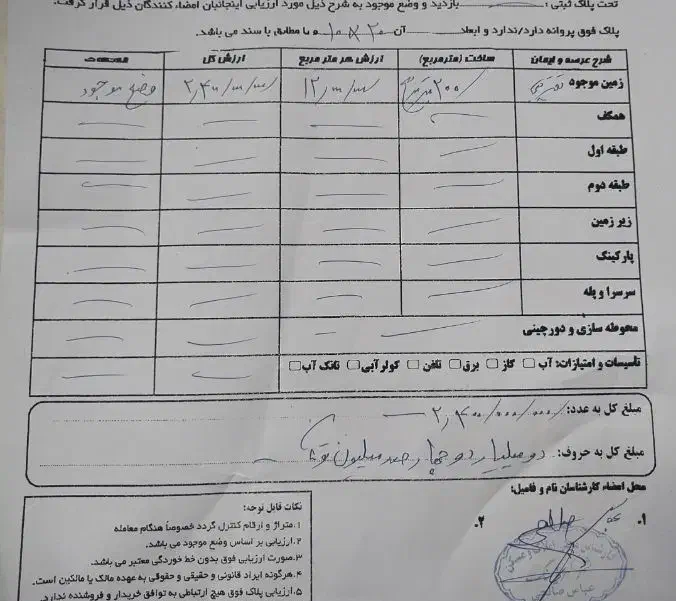 تحت پلاک ثبتی : بازدید و وضع موجود به شرح ذیل مورد ارزیابی اینجانبان امضاء کنندگان ذیل قرار گرفت.
پلاک فوق پروانه دارد/ندارد و ابعاد آن ۲۰×۱۰ مطابق با سند می باشد.
شرح عرصه و ایمان ساخت (مترمربع) ارزش هر متر مربع ارزش کل
زمین موجود تقریبی ۲۰۰ مترمربع ۱۲/۰۰۰/۰۰۰ ۲,۴۰۰/۰۰۰/۰۰۰ وضع موجود
همکف
طبقه اول
طبقه دوم
زیر زمین
پارکینگ
سرسرا و پله
محوطه سازی و دورچینی
تأسیسات و امتیازات: آب □ گاز □ برق □ تلفن □ کولر آبی □ تانک آب □
مبلغ کل به عدد: ۲,۴۰۰/۰۰۰/۰۰۰
مبلغ کل به حروف: دو میلیارد و چهارصد میلیون تومان
محل امضاء کارشناسان نام و فامیل:
۱. ۲.
نکات قابل توجه:
۱.متراژ و ارقام کنترل گردد خصوصاً هنگام معامله
۲.ارزیابی بر اساس وضع موجود می باشد.
۳.صورت ارزیابی فوق بدون خط خوردگی معتبر می باشد.
۴.هرگونه ایراد قانونی و حقیقی و حقوقی به عهده مالک یا مالکین است.
۵.ارزیابی پلاک فوق هیچ ارتباطی به توافق خریدار و فروشنده ندارد.